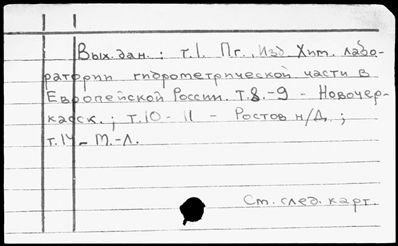 Вых. дан.: т.1. Пг., Изд. Хим. лабо-
ратории гидрометрической части в
Европейской России. Т.8.-9 - Новочер-
касск.; т.10-11 - Ростов н/Д.;
т.14 - М.-Л.
См. след. карт.